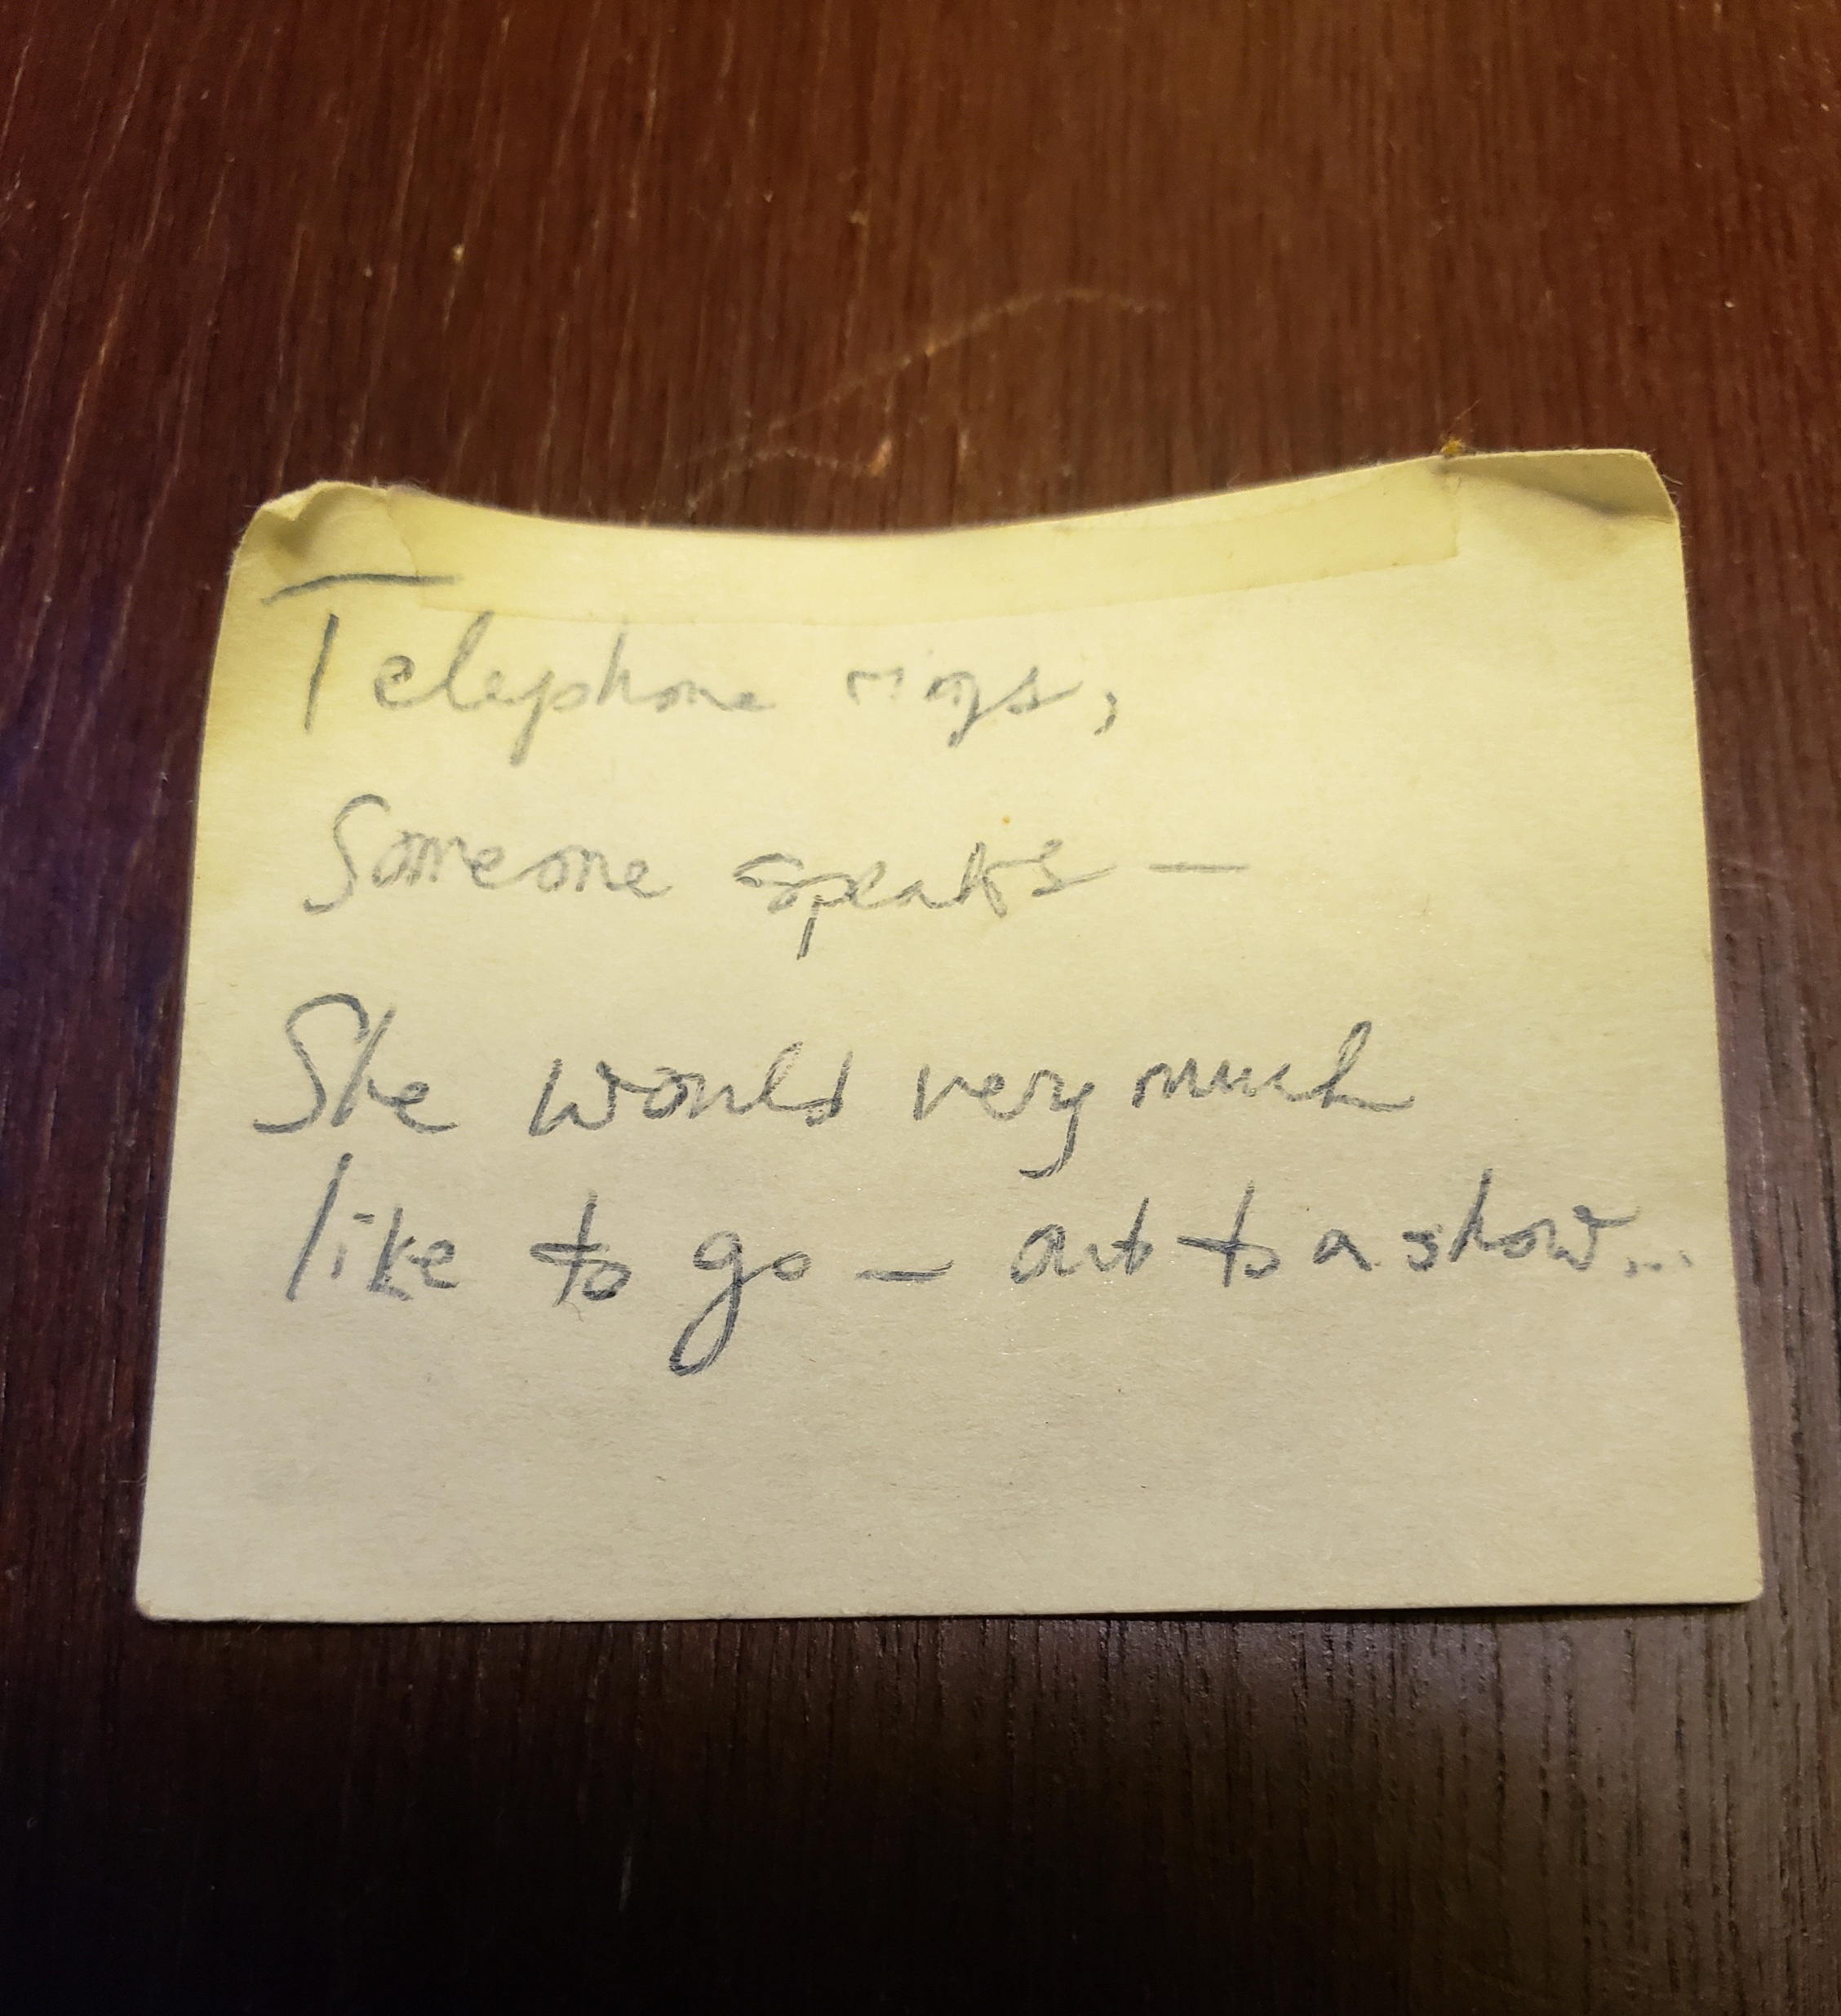 Telephone rings,
Someone speaks —
She would very much
like to go — out to a show...